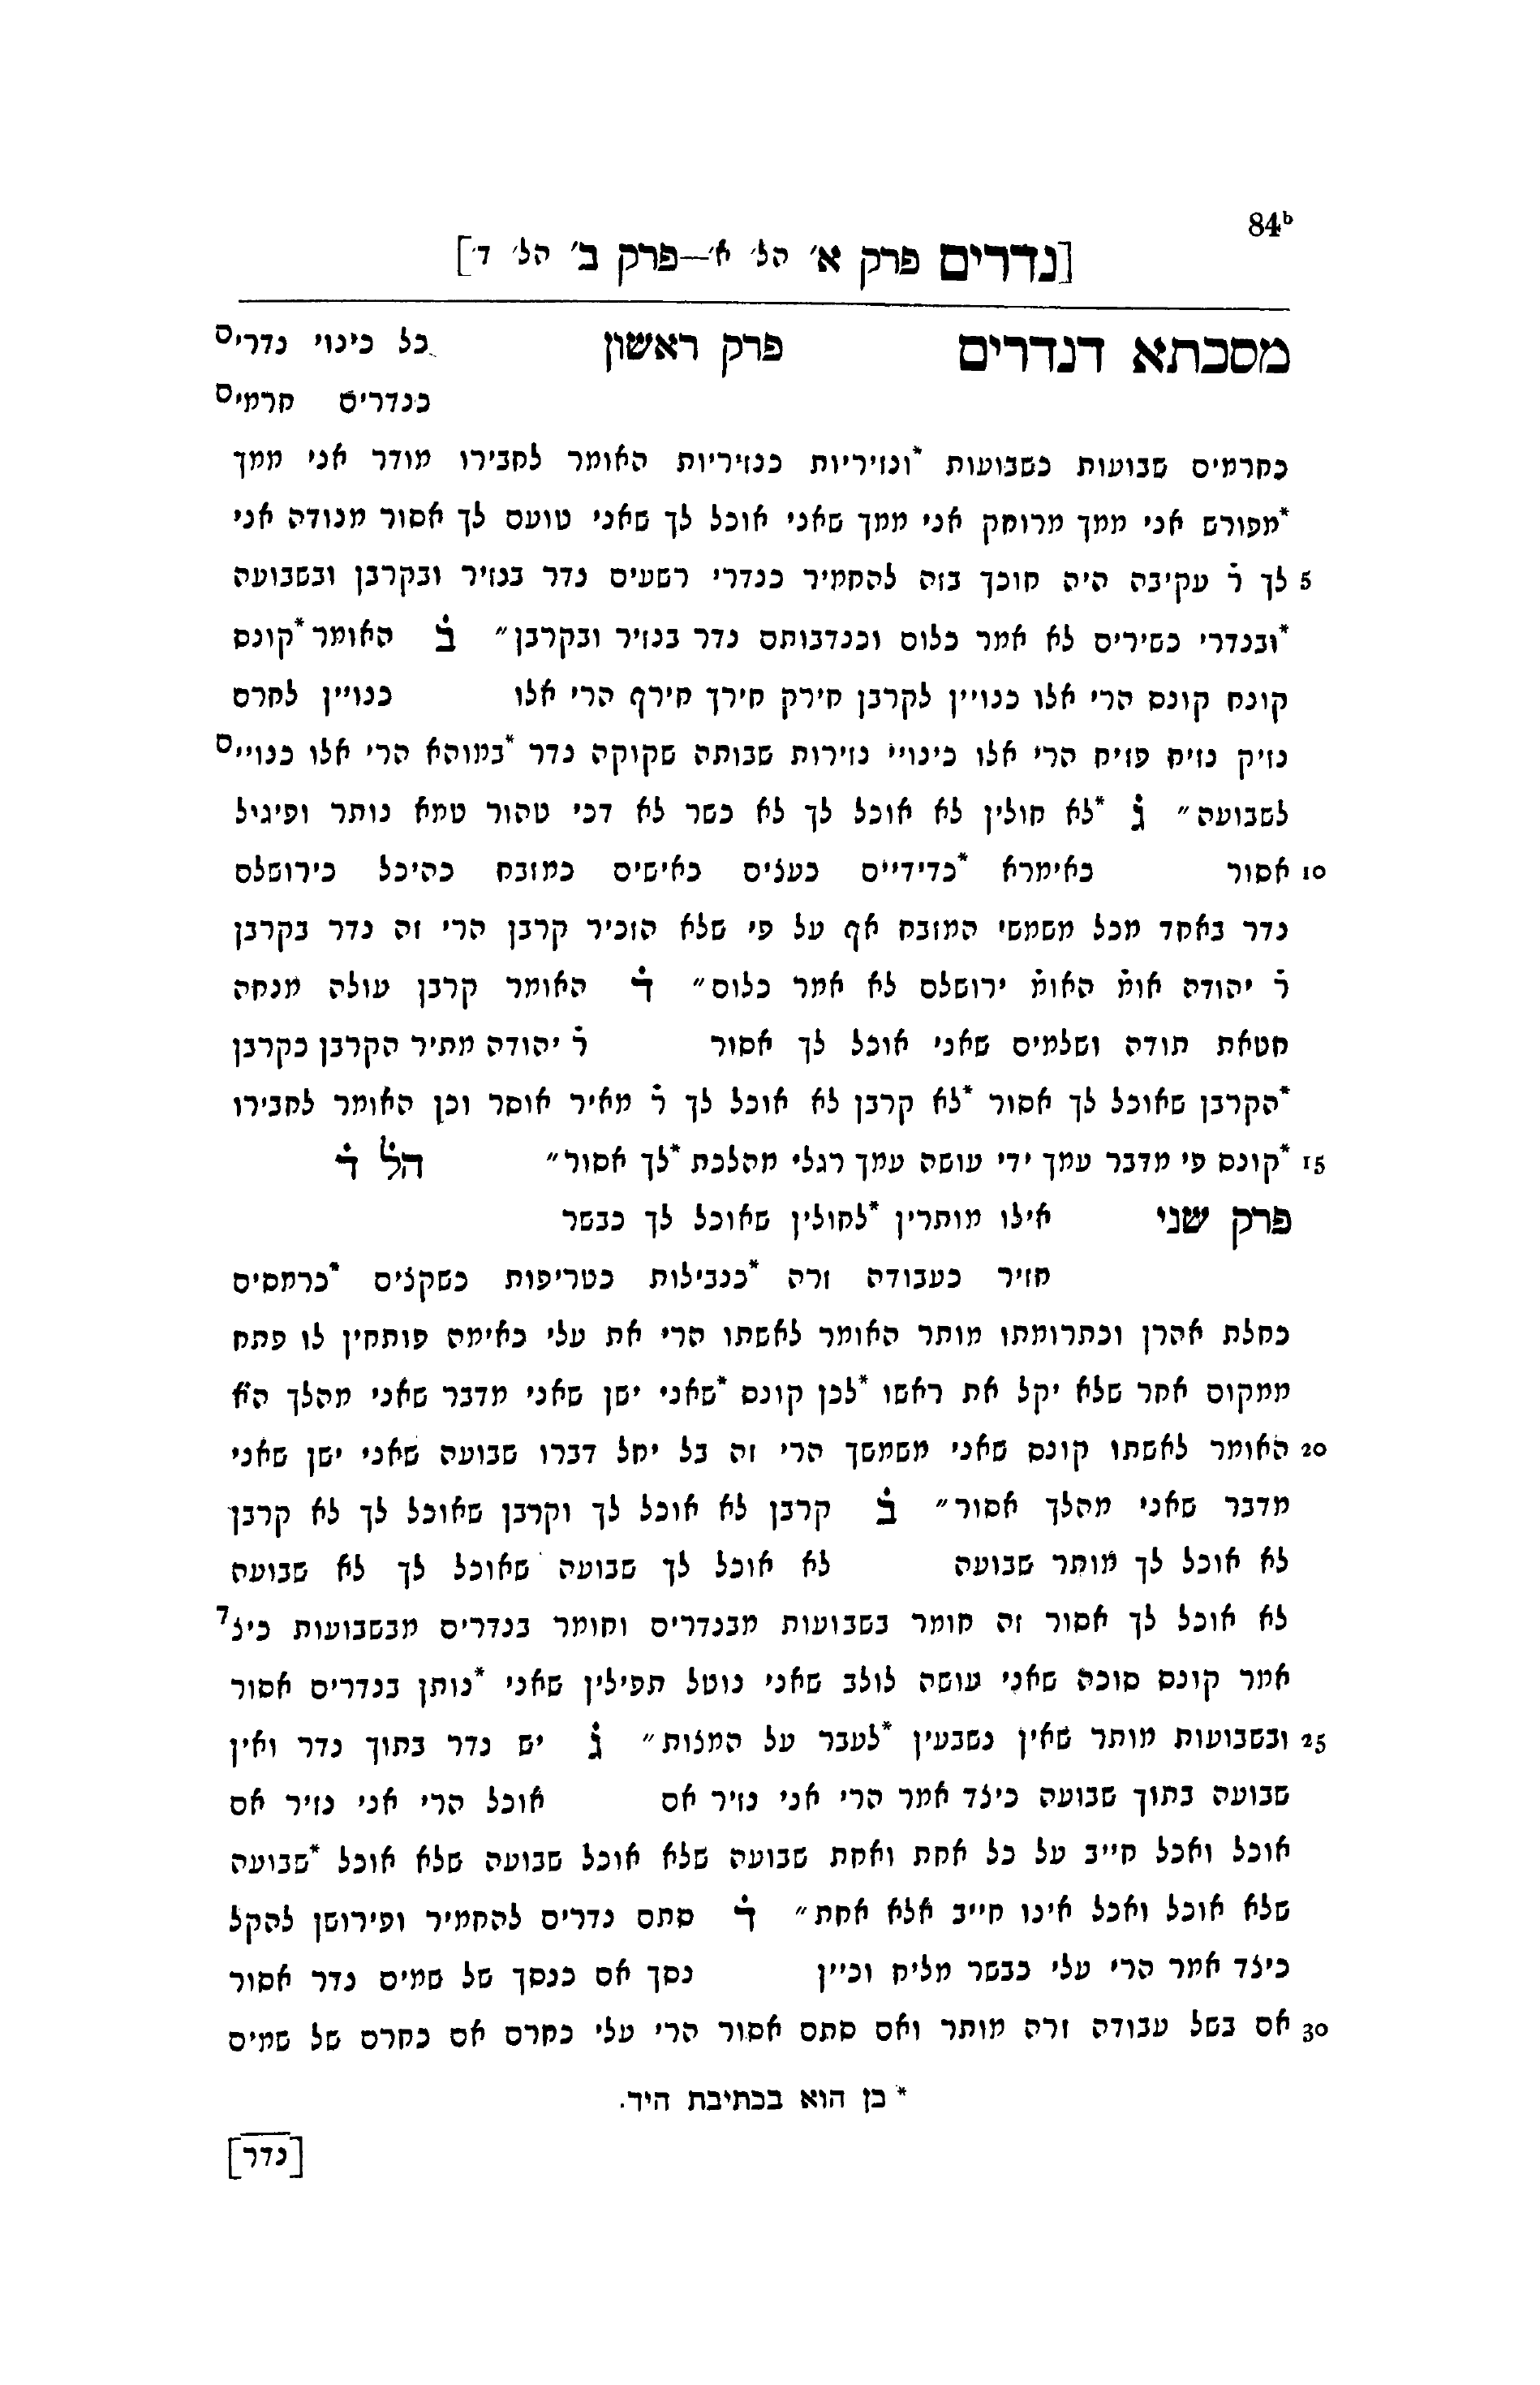 84b
[נדרים פרק א׳ הל׳ א׳—פרק ב׳ הל׳ ד׳]
מסכתא דנדרים פרק ראשון כל כינוי נדרים
כנדרים חרמים
כחרמים שבועות כשבועות *ונזיריות כנזיריות האומר לחבירו מודר אני ממך
*מפורש אני ממך מרוחק אני ממך שאני אוכל לך שאני טועם לך אסור מנודה אני
5 לך ר̇ עקיבה היה חוכך בזה להחמיר כנדרי רשעים נדר בנזיר ובקרבן ובשבועה
*ובנדרי כשירים לא אמר כלום וכנדבותם נדר בנזיר ובקרבן״ ב̇ האומר *קונם
קונח קונס הרי אלו כנויין לקרבן חירק חירך חירף הרי אלו כנויין לחרם
נזיק נזיח פזיח הרי אלו כינויי נזירות שבותה שקוקה נדר *במוהא הרי אלו כנויים
לשבועה״ ג̇ *לא חולין לא אוכל לך לא כשר לא דכי טהור טמא נותר ופיגול
10 אסור כאימרא *כדידיים כעצים כאישים כמזבח כהיכל כירושלם
נדר באחד מכל משמשי המזבח אף על פי שלא הזכיר קרבן הרי זה נדר בקרבן
ר̇ יהודה אומ̇ האומ̇ ירושלם לא אמר כלום״ ד̇ האומר קרבן עולה מנחה
חטאת תודה ושלמים שאני אוכל לך אסור ר̇ יהודה מתיר הקרבן כקרבן
*הקרבן שאוכל לך אסור *לא קרבן לא אוכל לך ר̇ מאיר אוסר וכן האומר לחבירו
15 *קונם פי מדבר עמך ידי עושה עמך רגלי מהלכת *לך אסור״ הל̇ ד̇
פרק שני אילו מותרין *לחולין שאוכל לך כבשר
חזיר כעבודה זרה *כנבילות כטריפות כשקצים *כרמסים
כחלת אהרן וכתרומתו מותר האומר לאשתו הרי את עלי כאימה פותחין לו פתח
ממקום אחר שלא יקל את ראשו *לכן קונם *שאני ישן שאני מדבר שאני מהלך הא̇
20 האומר לאשתו קונם שאני משמשך הרי זה בל יחל דברו שבועה שאני ישן שאני
מדבר שאני מהלך אסור״ ב̇ קרבן לא אוכל לך וקרבן שאוכל לך לא קרבן
לא אוכל לך מותר שבועה לא אוכל לך שבועה שאוכל לך לא שבועה
לא אוכל לך אסור זה חומר בשבועות מבנדרים וחומר בנדרים מבשבועות כיצד
אמר קונם סוכה שאני עושה לולב שאני נוטל תפילין שאני *נותן בנדרים אסור
25 ובשבועות מותר שאין נשבעין *לעבר על המצות״ ג̇ יש נדר בתוך נדר ואין
שבועה בתוך שבועה כיצד אמר הרי אני נזיר אם אוכל הרי אני נזיר אם
אוכל ואכל חייב על כל אחת ואחת שבועה שלא אוכל שבועה שלא אוכל *שבועה
שלא אוכל ואכל אינו חייב אלא אחת״ ד̇ סתם נדרים להחמיר ופירושן להקל
כיצד אמר הרי עלי כבשר מליח וכיין נסך אם כנסך של שמים נדר אסור
30 אם בשל עבודה זרה מותר ואם סתם אסור הרי עלי כחרם אם כחרם של שמים
* כן הוא בכתיבת היד.
[נדר]